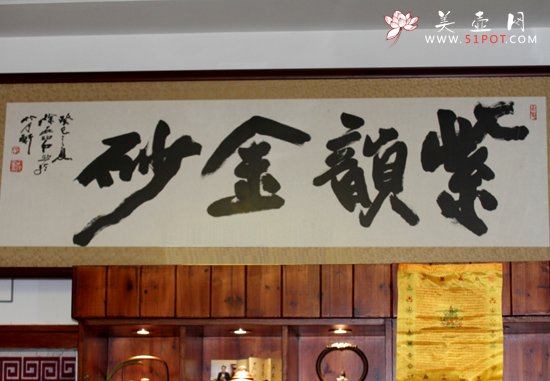 美壶网
WWW.51POT.COM
紫韻金砂
癸巳之夏